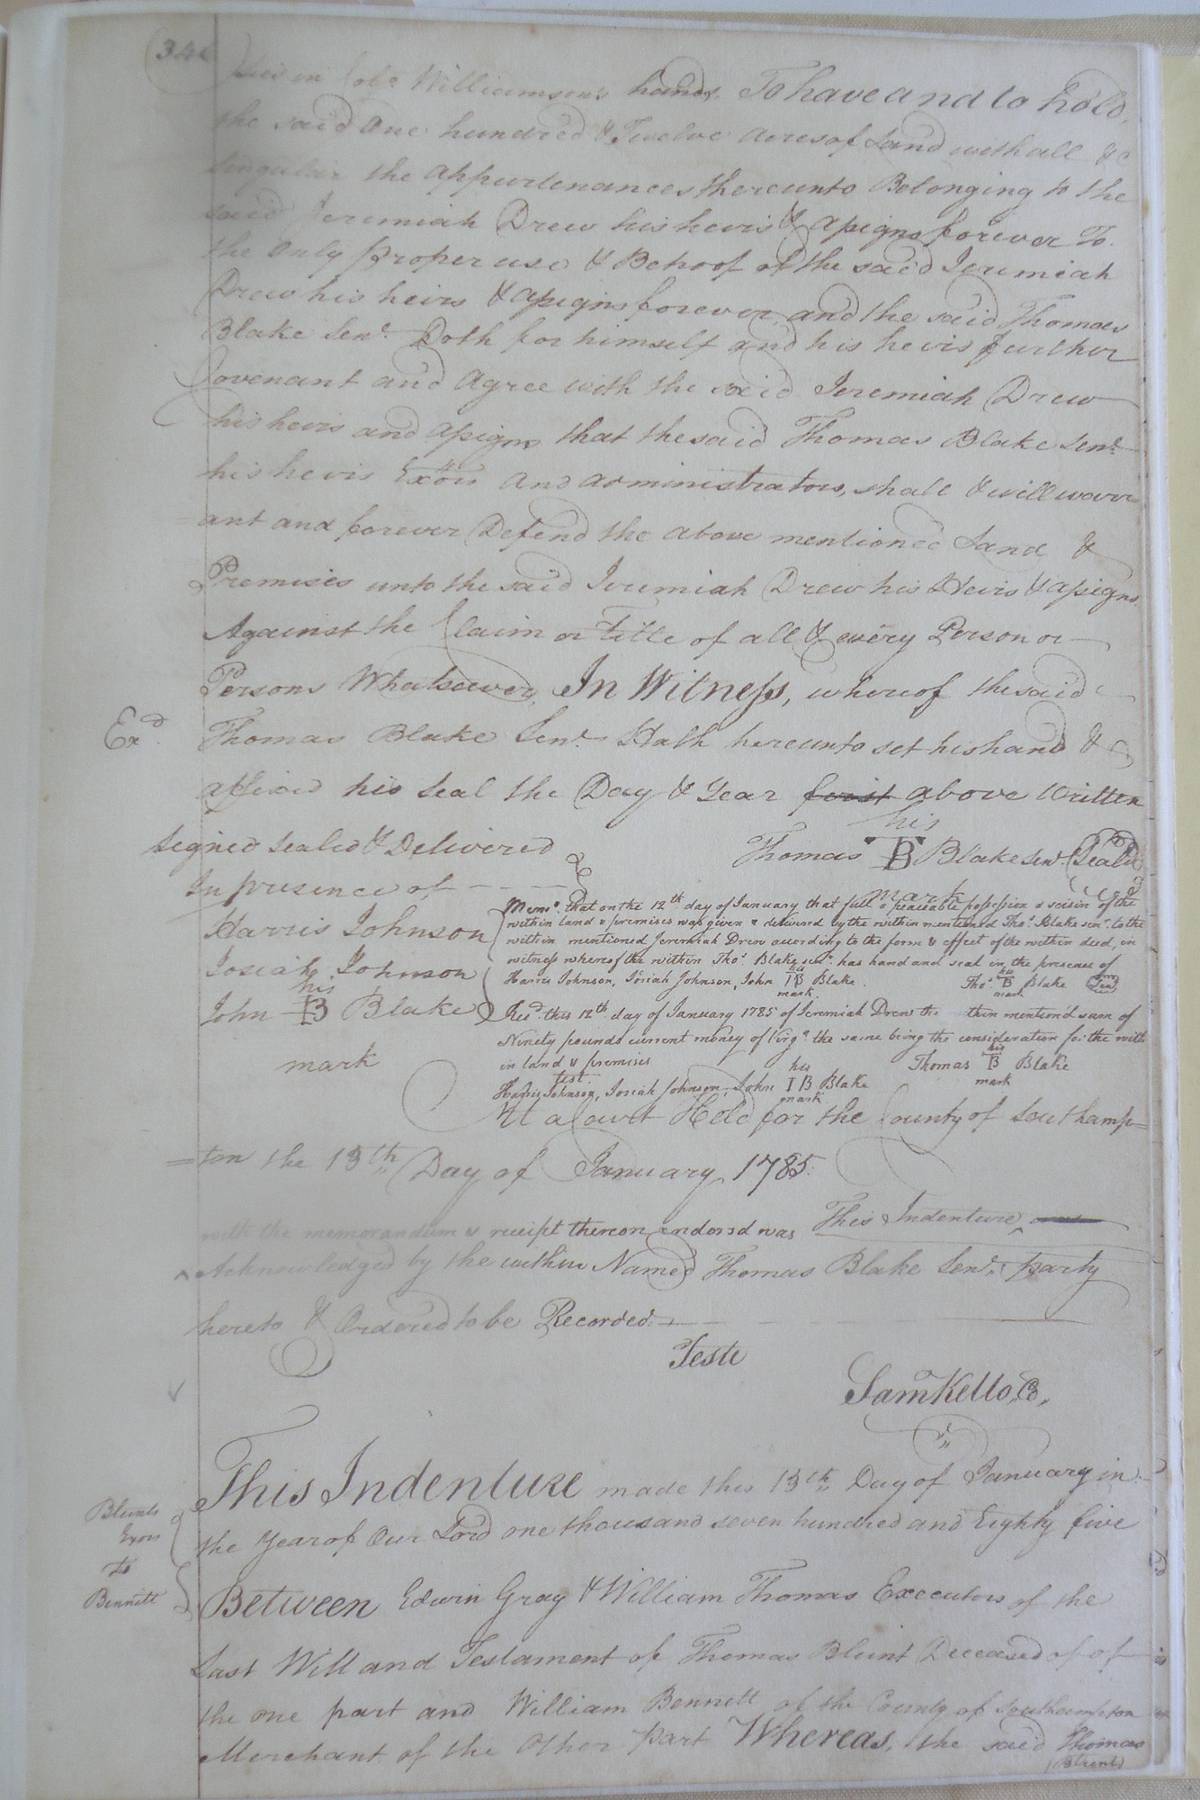 34
in Colo Williamsons hands. To have and to hold
the said One hundred & Twelve Acres of Land with all &
Singular the appurtenances thereunto Belonging to the
said Jeremiah Drew his heirs & assigns forever To
the Only proper use & Behoof of the said Jeremiah
Drew his heirs & assigns forever, and the said Thomas
Blake Senr. Doth for himself and his heirs further
Covenant and Agree with the said Jeremiah Drew
his heirs and assigns that the said Thomas Blake Senr
his heirs Exors and administrators, shall & will warr
ant and forever Defend the above mentioned Land &
Premises unto the said Jeremiah Drew his Heirs & assigns
Against the Claim or Title of all & every Person or
Persons Whatsoever, In Witness, whereof the said
Exd. Thomas Blake Senr. Hath hereunto set his hand &
affixed his Seal the Day & Year first above Written
Signed Sealed & Delivered
In presence of
Harris Johnson
Josiah Johnson
his
John B Blake
mark
his
Thomas TB Blake Senr. (Seal)
mark
Memo. that on the 12th day of January that full & peaceable possession & seisin of the
within land & premises was given & delivered by the within mentioned Thos. Blake senr. to the
within mentioned Jeremiah Drew according to the form & effect of the within deed, in
witness whereof the within Thos. Blake senr. has hand and seal in the presence of
Harris Johnson, Josiah Johnson, John his IB mark Blake. Thos. his B mark Blake (Seal)
Recd. this 12th day of January 1785 of Jeremiah Drew the thin mention'd sum of
Ninety pounds current money of Virga. the same being the consideration for the with
in land & premises Thomas his B mark Blake
Test.
Harris Johnson, Josiah Johnson, John his IB mark Blake
At a Court Held for the County of Southamp=
=ton the 13th Day of January 1785.
with the memorandum & receipt thereon endorsd was This Indenture ^ was
^ Acknowledged by the within Named Thomas Blake Senr. party
hereto & Ordered to be Recorded.
Teste
Saml Kello, C
This Indenture made this 13th Day of January in
the Year of Our Lord one thousand seven hundred and Eighty five
Blunts
Exors
to
Bennett
Between Edwin Gray & William Thomas Executors of the
Last Will and Testament of Thomas Blunt Deceased of of
the one part and William Bennett of the County of Southampton
Merchant of the Other Part Whereas, the said Thomas
(Blunt)